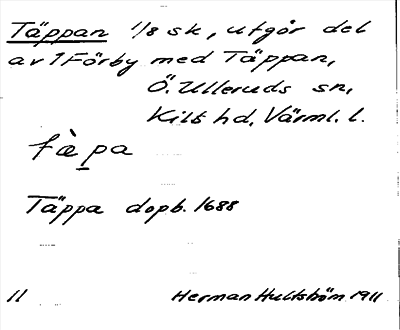 Täppan 1/8 sk, utgör del
av 1 Förby med Täppan,
Ö. Ulleruds sn,
Kils hd, Värml. l.
tæ̀p̠a
Täppa dopb. 1688
11 Herman Hultström 1911